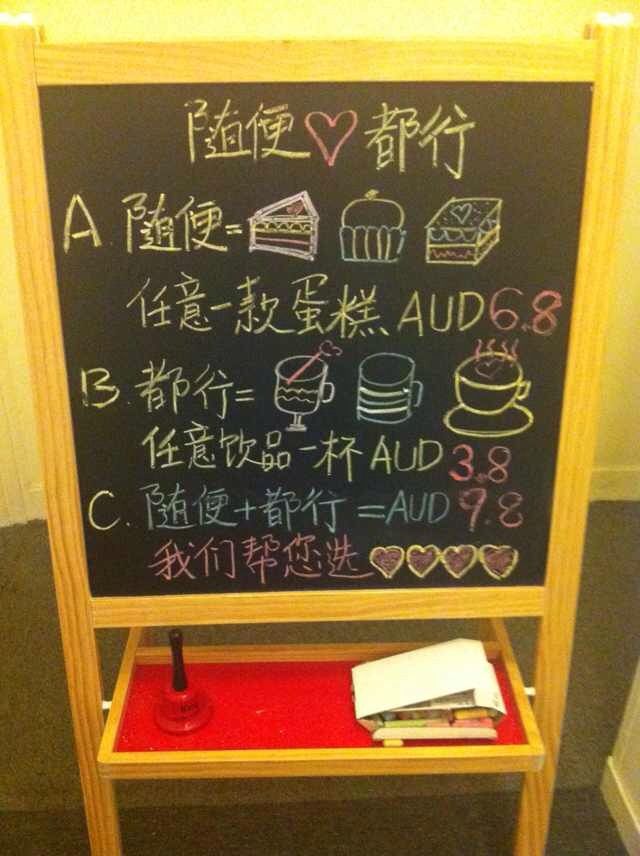 随便♡都行
A. 随便=
任意一款蛋糕 AUD 6.8
B. 都行=
任意饮品一杯 AUD 3.8
C. 随便+都行=AUD 9.8
我们帮您选